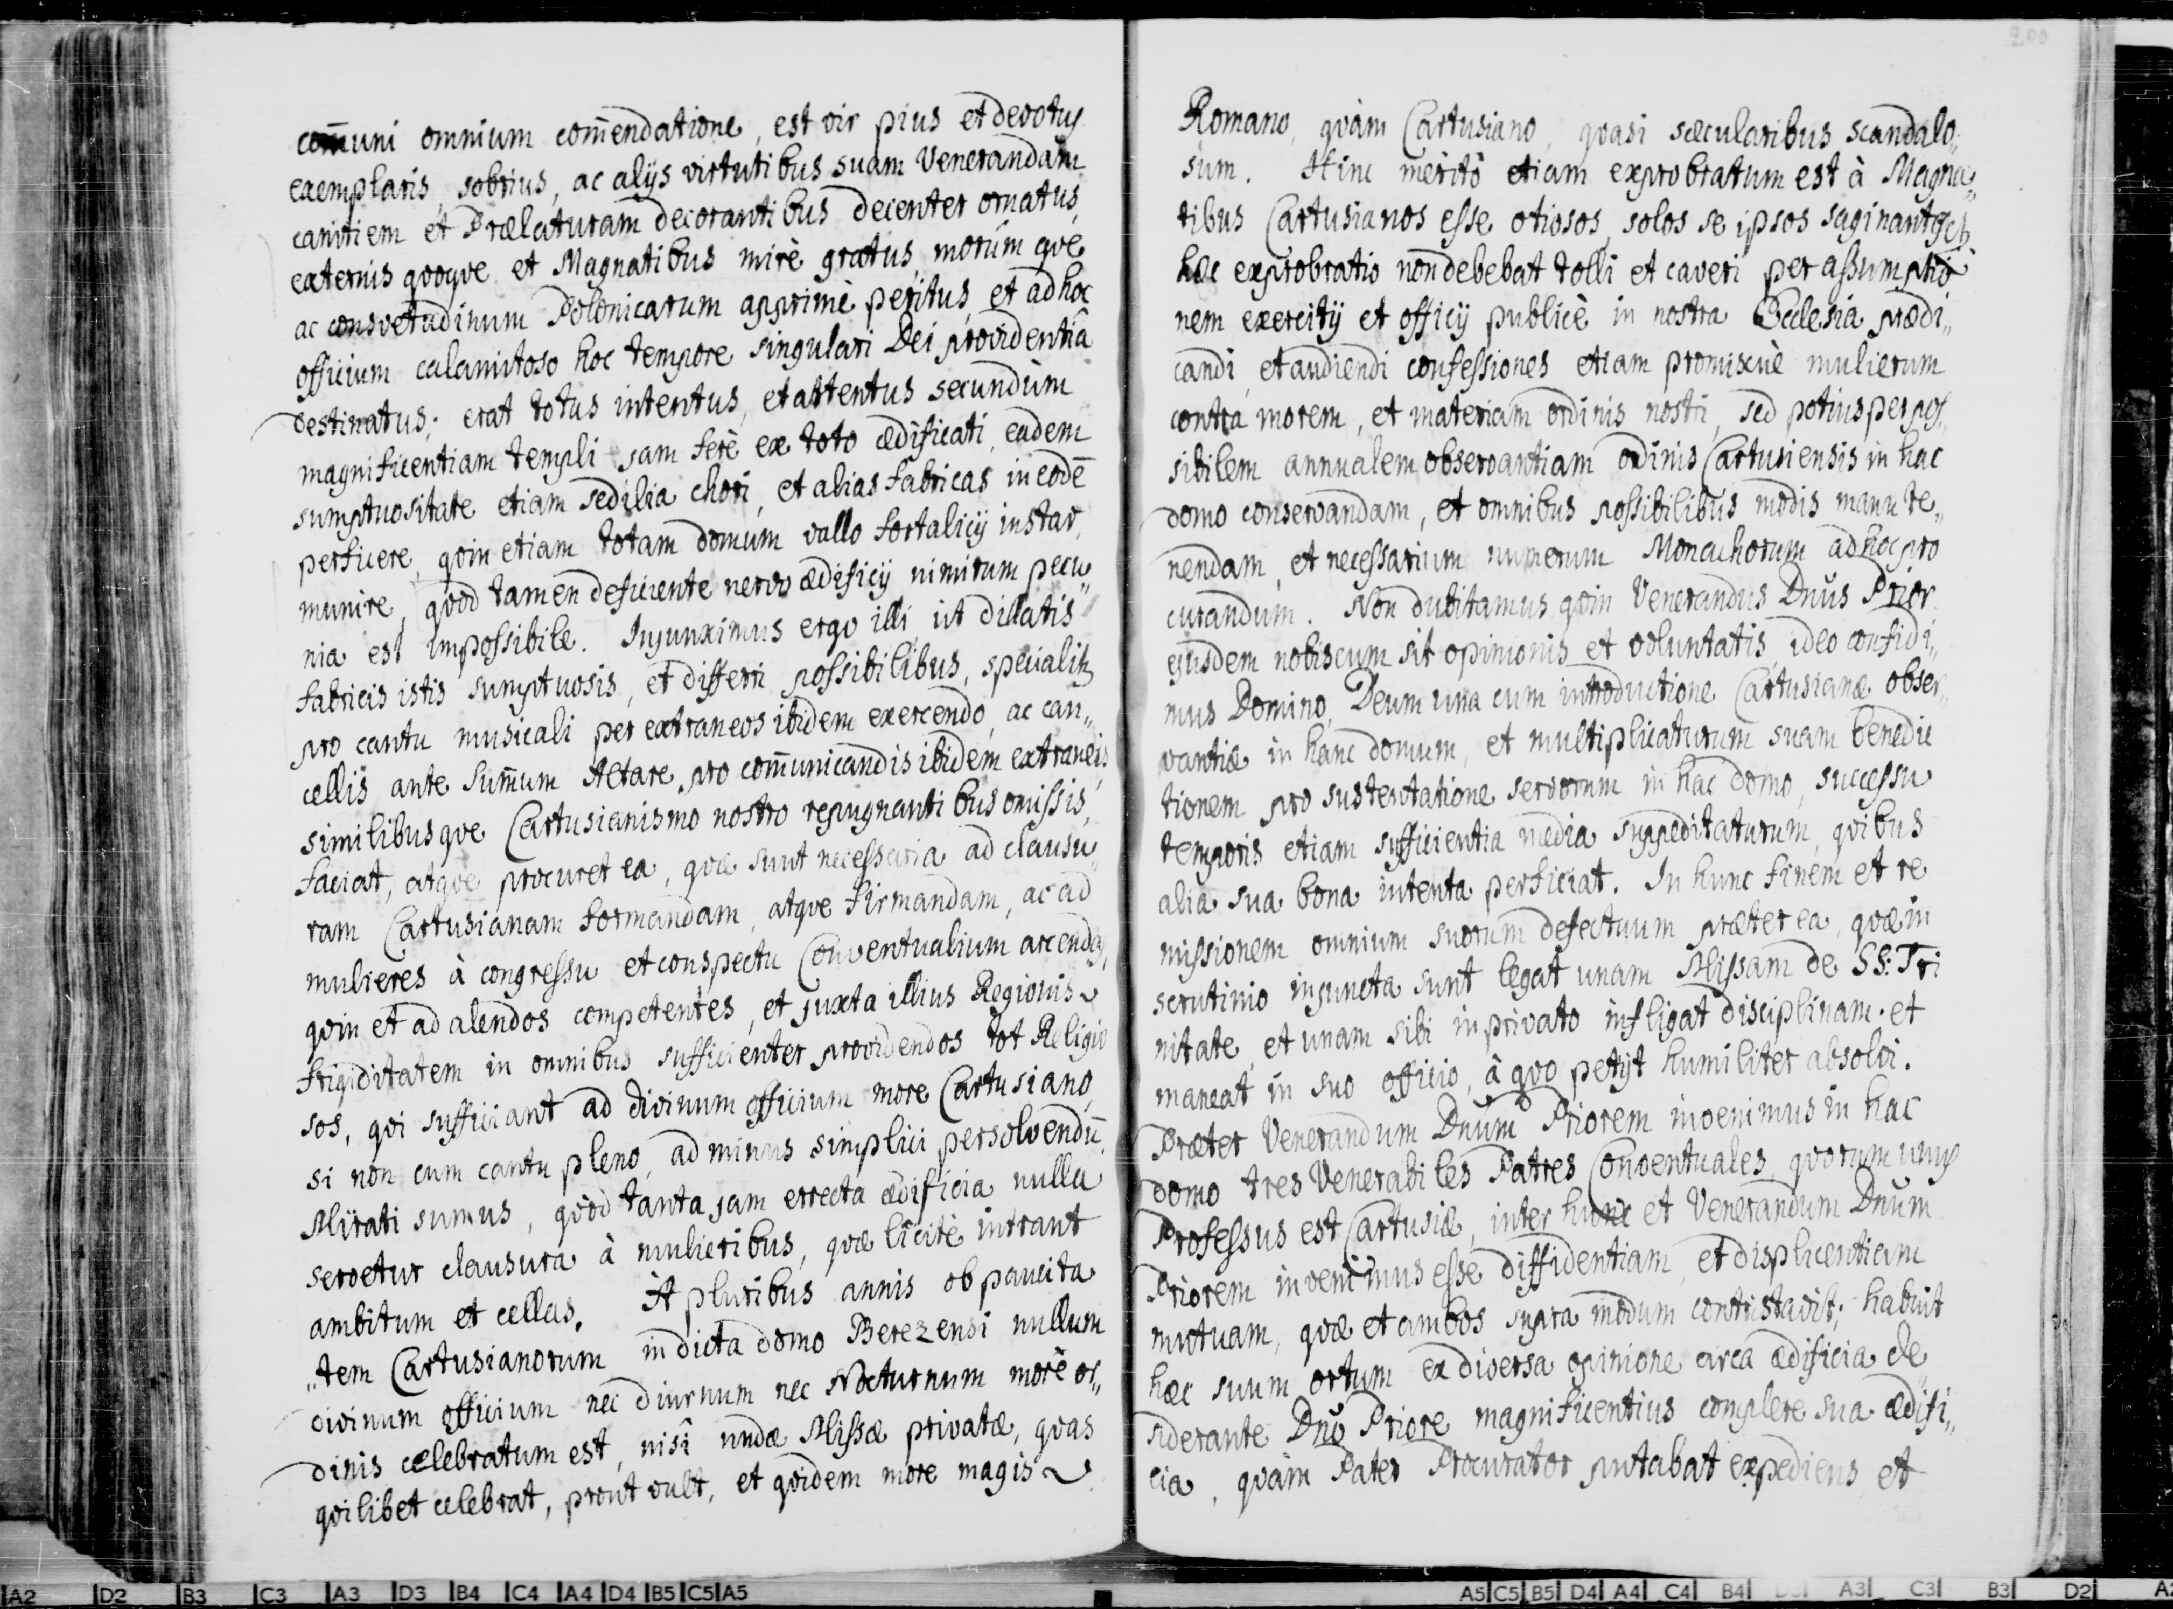 com̄uni omnium com̄endatione, est vir pius et devotus
exemplaris, sobrius, ac alijs virtutibus suam Venerandam
canitiem et Prælaturam decorantibus decenter ornatus,
externis qvoqve et Magnatibus mirè gratus, morúm qve
ac consvetudinum Polonicarum apprimè peritus, et ad hoc
officium calamitoso hoc tempore singulari Dei providentiâ
destinatus; erat totus intentus, et attentus secundùm
magnificentiam templi jam ferè ex toto ædificati, eadem
sumptuositate etiam sedilia chori, et alias fabricas in eodē
perficere, qvin etiam totam domum vallo fortalicij instar,
munire, qvod tamen deficiente nervo ædificij nimirum pecu„
nia est impossibile. Injunximus ergo illi, ut dillatis
fabricis istis sumptuosis, et differri possibilibus, specialit͛
pro cantu musicali per extraneos ibidem exercendo, ac can„
cellis ante Sum̄um Altare pro com̄unicandis ibidem extraneis,
similibusqve Cartusianismo nostro repugnantibus omissis,
faciat, atqve procuret ea, qvæ sunt necessaria ad clausu„
ram Cartusianam formandam, atqve firmandam, ac ad
mulieres à congressu et conspectu Conventualium arcendas,
qvin et ad alendos competentes, et juxta illius Regionis
frigiditatem in omnibus sufficienter providendos tot Religio
sos, qvi sufficiant ad divinum officium more Cartusiano,
si non cum cantu pleno, ad minus simplici persolvendū.
Mirati sumus, qvòd tanta jam errecta ædificia nulla
servetur clausura à mulieribus, qvæ licitè intrant
ambitum et cellas. A pluribus annis ob paucita
„tem Cartusianorum in dicta domo Berezensi nullum
divinum officium nec diurnum nec Nocturnum more or„
dinis celebratum est, nisi nudæ Missæ privatæ, qvas
qvilibet celebrat, prout vult, et qvidem more magis
200
Romano, qvàm Cartusiano, qvasi sæcularibus scandalo„
sum. Hinc meritò etiam exprobratum est à Magna„
tibus Cartusianos esse otiosos, solos se ipsos saginantes,
hæc exprobratio non debebat tolli et caveri per assumptio
nem exercitij et officij publicè in nostra Ecclesia prædi„
candi, et audiendi confessiones etiam promixuè mulierum
contra morem, et materiam ordinis nostri, sed potius per pos„
sibilem annualem observantiam ordinis Cartusiensis in hac
domo conservandam, et omnibus possibilibus modis manu te„
nendam, et necessarium numerum Monachorum ad hoc pro
curandum. Non dubitamus qvin Venerandus Dn̄us Prior
ejusdem nobiscum sit opinionis et voluntatis, ideo confidi„
mus Domino, Deum una cum introductione Cartusianæ obser„
vantiæ in hanc domum, et multiplicaturum suam benedic
tionem pro sustentatione servorum in hac domo, successu
temporis etiam sufficientia media suppeditaturum, qvibus
alia sua bona intenta perficiat. In hunc finem et re
missionem omnium suorum defectuum præter ea, qvæ in
scrutinio injuncta sunt legat unam Missam de SS: Tri
nitate, et unam sibi in privato infligat disciplinam. et
maneat in suo officio, à qvo petijt humiliter absolvi.
Præter Venerandum Dn̄um Priorem invenimus in hac
domo tres Venerabiles Patres Conventuales, qvorum unus
Professus est Cartusiæ, inter hunc et Venerandum Dn̄um
Priorem invenimus esse diffidentiam, et displicentiam
mutuam, qvæ et ambos supra modum contristavit; habuit
hæc suum ortum ex diversa opinione circa ædificia de„
siderante Dn̄o Priore magnificentius complere sua ædifi„
cia, qvàm Pater Procurator putabat expediens, et
A2 D2 B3 C3 A3 D3 B4 C4 A4 D4 B5 C5 A5 A5 C5 B5 D4 A4 C4 B4 D3 A3 C3 B3 D2 A2